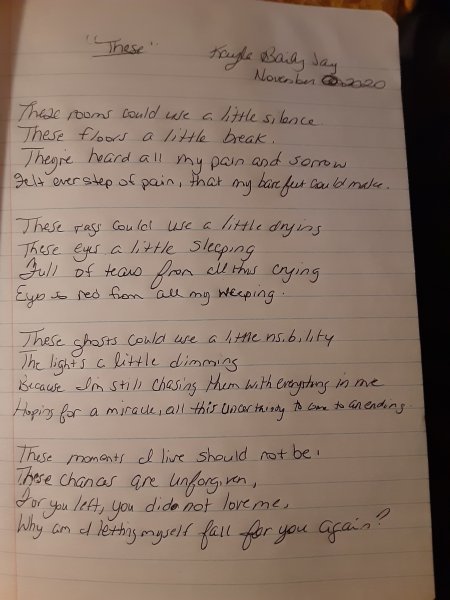 "These"
Kayla Baily Jay
November 2020
These rooms could use a little silence.
These floors a little break.
They're heard all my pain and sorrow
Felt ever step of pain, that my bare feet could make.
These rags could use a little drying
These eyes a little sleeping
Full of tears from all this crying
Eyes so red from all my weeping.
These ghosts could use a little
The lights a little dimming
Because I'm still chasing them with everything in me
Hoping for a miracle, all this uncertainty to come to an ending.
These moments I live should not be,
These chances are unforgiven,
For you left, you did not love me,
Why am I letting myself fall for you again?